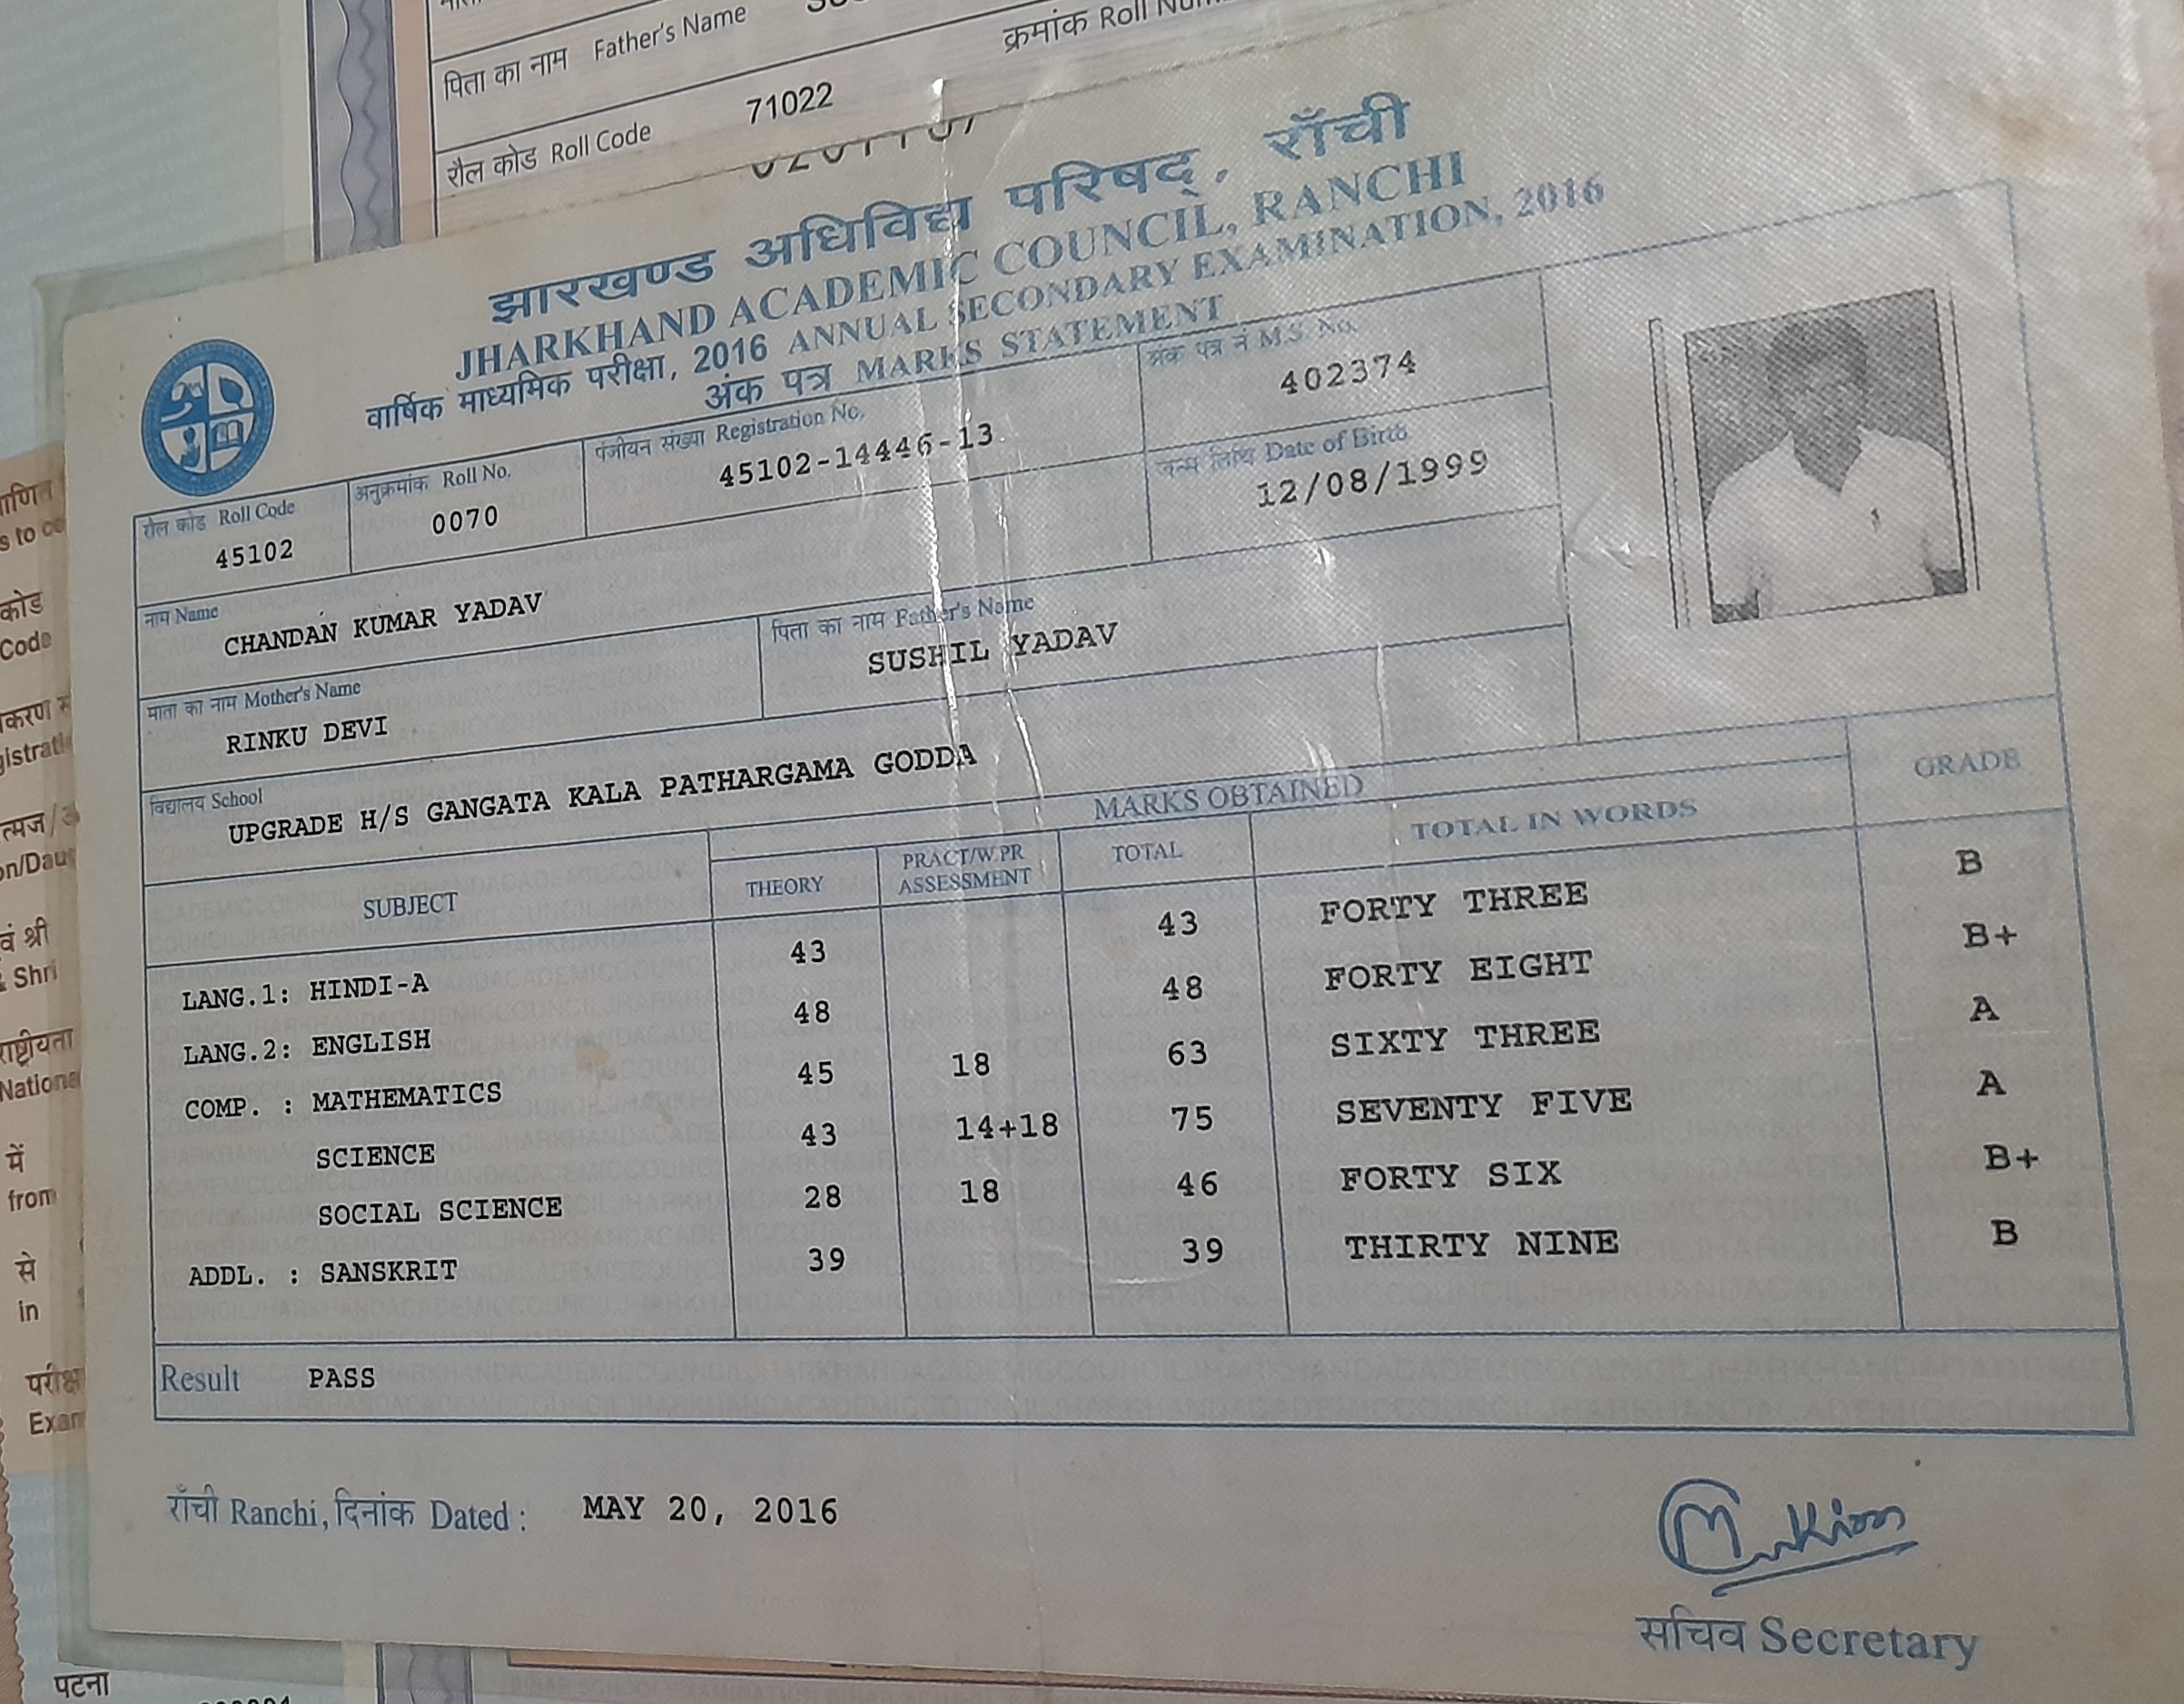 पिता का नाम Father's Name
क्रमांक Roll
रौल कोड Roll Code 71022
झारखण्ड अधिविद्य परिषद्, राँची
JHARKHAND ACADEMIC COUNCIL, RANCHI
वार्षिक माध्यमिक परीक्षा, 2016 ANNUAL SECONDARY EXAMINATION, 2016
अंक पत्र MARKS STATEMENT
रौल कोड Roll Code अनुक्रमांक Roll No. पंजीयन संख्या Registration No. अंक पत्र नं M.S. No.
45102 0070 45102-14446-13 402374
जन्म तिथि Date of Birth
12/08/1999
नाम Name
CHANDAN KUMAR YADAV
माता का नाम Mother's Name पिता का नाम Father's Name
RINKU DEVI SUSHIL YADAV
विद्यालय School
UPGRADE H/S GANGATA KALA PATHARGAMA GODDA
MARKS OBTAINED GRADE
SUBJECT THEORY PRACT/W.PR ASSESSMENT TOTAL TOTAL IN WORDS
LANG.1: HINDI-A 43 43 FORTY THREE B
LANG.2: ENGLISH 48 48 FORTY EIGHT B+
COMP. : MATHEMATICS 45 18 63 SIXTY THREE A
SCIENCE 43 14+18 75 SEVENTY FIVE A
SOCIAL SCIENCE 28 18 46 FORTY SIX B+
ADDL. : SANSKRIT 39 39 THIRTY NINE B
Result PASS
राँची Ranchi, दिनांक Dated : MAY 20, 2016
सचिव Secretary
s to
कोड
Code
वं श्री
Shri
राष्ट्रीयता
में
from
से
in
पटना